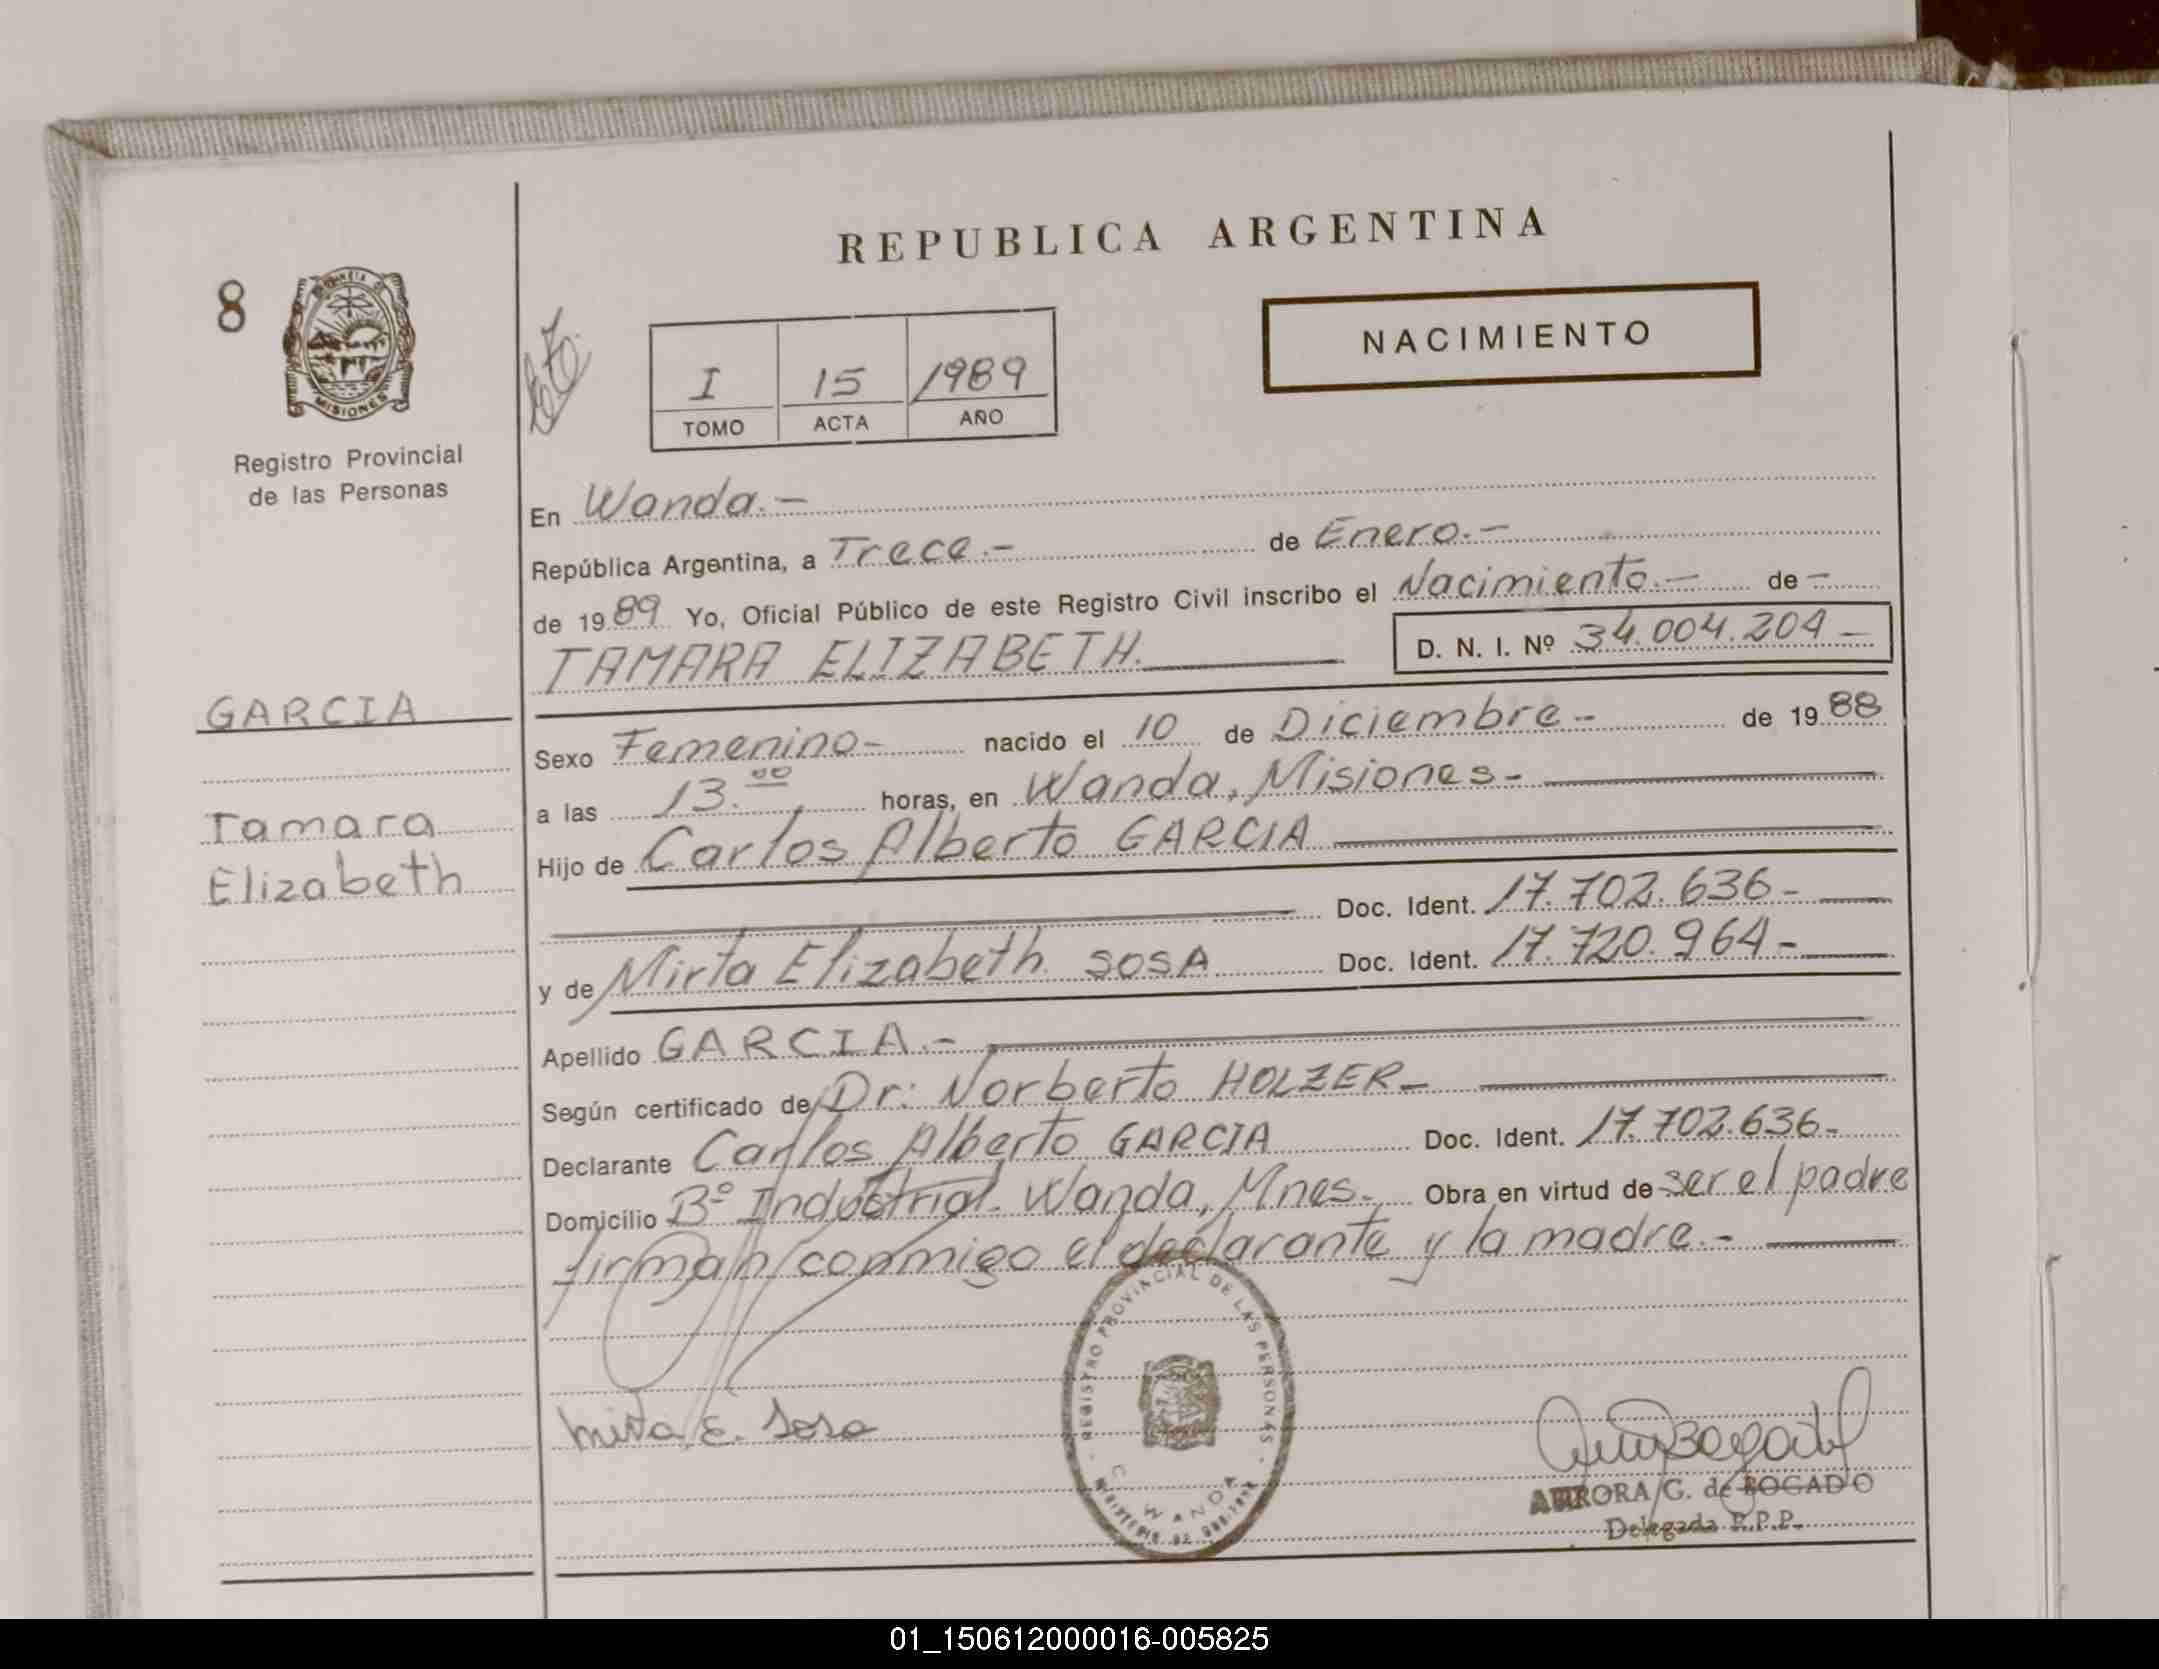 REPUBLICA ARGENTINA
8
PROVINCIA DE
MISIONES
Registro Provincial
de las Personas
I 15 1989
TOMO ACTA AÑO
NACIMIENTO
En Wanda.-
República Argentina, a Trece.- de Enero.-
de 1989 Yo, Oficial Público de este Registro Civil inscribo el Nacimiento.- de -
TAMARA ELIZABETH. D. N. I. Nº 34.004.204 -
GARCIA
Tamara
Elizabeth
Sexo Femenino- nacido el 10 de Diciembre- de 1988
a las 13.00 horas, en Wanda, Misiones-
Hijo de Carlos Alberto GARCIA
Doc. Ident. 17.702.636-
y de Mirta Elizabeth SOSA Doc. Ident. 17.720.964-
Apellido GARCIA.-
Según certificado de Dr: Norberto HOLZER-
Declarante Carlos Alberto GARCIA Doc. Ident. 17.702.636-
Domicilio Bº Industrial. Wanda, Mnes.- Obra en virtud de ser el padre
firman conmigo el declarante y la madre.-
Mirta E. Sosa
REGISTRO PROVINCIAL DE LAS PERSONAS
WANDA
AURORA G. de BOGADO
Delegada R.P.P.
01_150612000016-005825